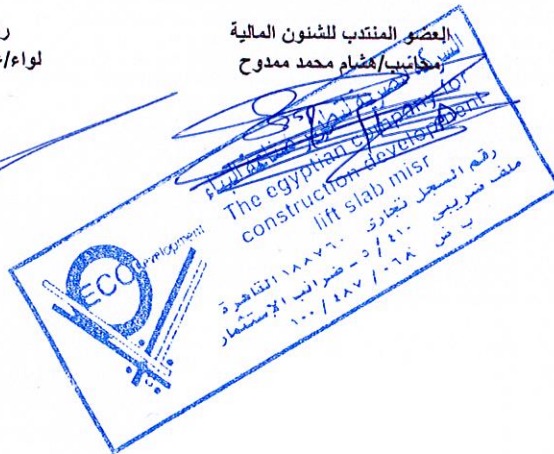 العضو المنتدب للشئون المالية
محاسب/هشام محمد ممدوح
لواء/
الشركة المصرية لتطوير صناعة البناء
The egyptian company for
construction development
lift slab misr
رقم السجل تجارى ١٨٨٧٦٠ القاهرة
ملف ضريبى ٤١٠ / ٥ - ضرائب الإستثمار
ب ض ٠٦٨ / ٤٨٧ / ١٠٠
ECO
Development